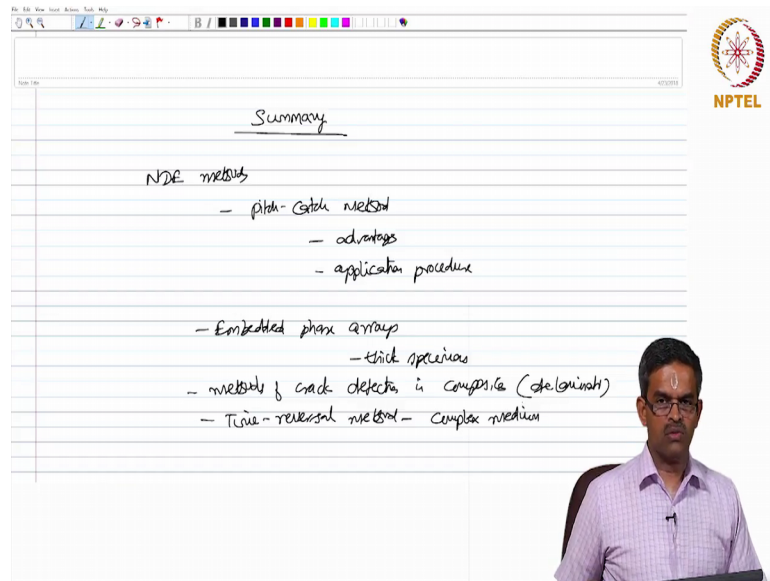 File Edit View Insert Actions Tools Help
B I
Note Title
4/23/2018
NPTEL
Summary
NDE methods
- pitch-catch method
- advantages
- application procedure
- Embedded phase arrays
- thick specimens
- methods of crack detection in composites (delamination)
- Time-reversal method - complex medium